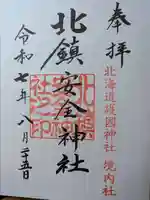 奉拝
北海道護国神社 境内社
北鎮安全神社
令和七年八月二十五日